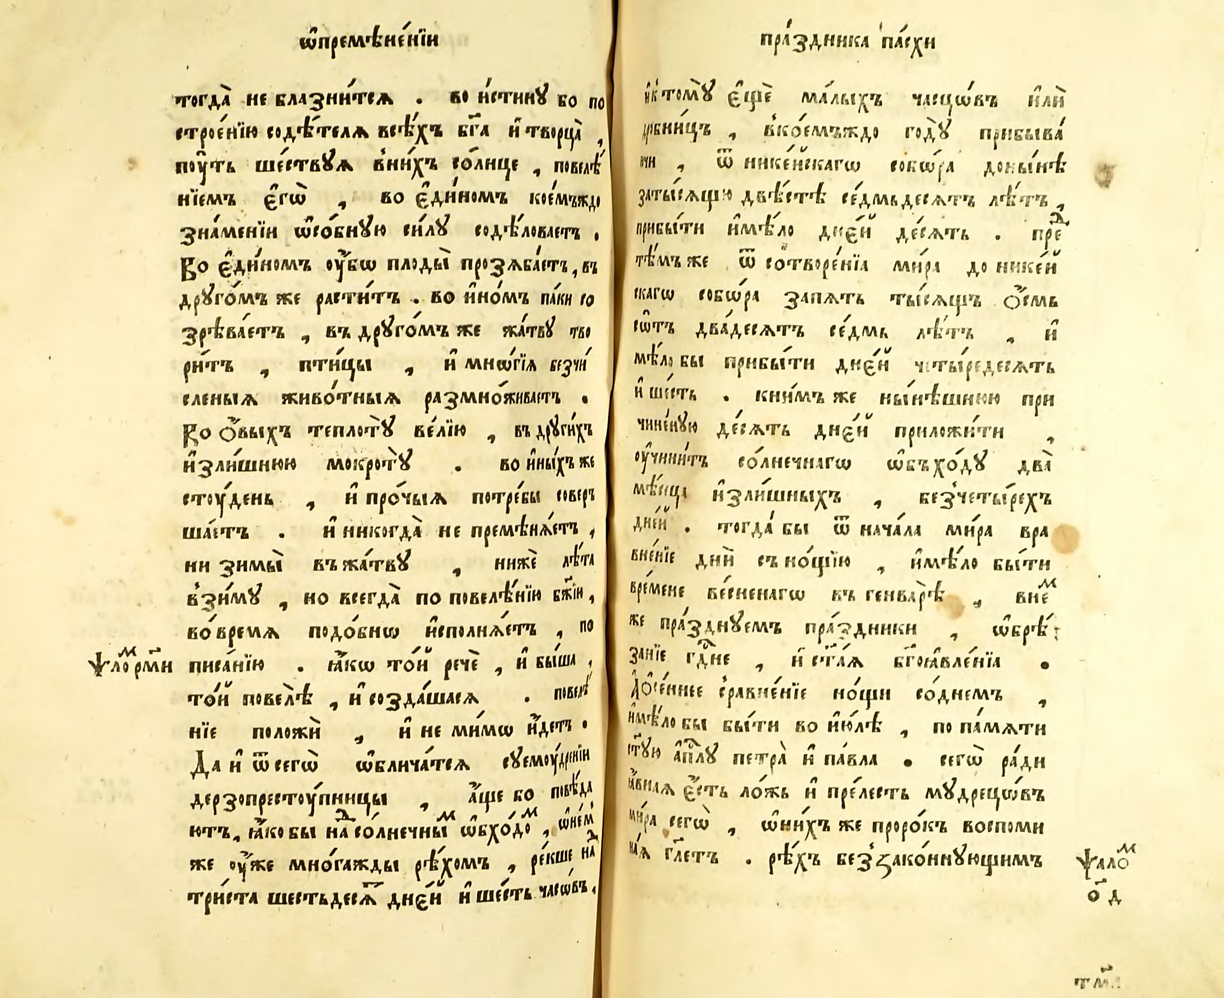 ѡ҆премѣне́нїи
тогда̀ не блазни́тсѧ . во и҆́стинꙋ бо по
строе́нїю содѣ́телѧ всѣ́хъ бг҃а и҆ творца̀ ,
поу́ть ше́ствꙋѧ в̾ни́хъ со́лнце , повелѣ́
нїемъ є҆гѡ̀ , во є҆ди́номъ кое́мъждо
зна́менїи ѡ҆со́бнꙋю си́лꙋ содѣ́ловаетъ .
Во є҆ди́номъ ᲂу҆́бѡ плоды̀ прозѧба́етъ , въ
дрꙋго́мъ же расти́тъ . во и҆но́мъ па́ки со
зрѣва́етъ , въ дрꙋго́мъ же жа́твꙋ тво
ри́тъ , пти́цы , и҆ мнѡ́гїѧ безчи́
сленыѧ живо́тныѧ размно́живаетъ .
Во ѻ҆́выхъ теплотꙋ̀ ве́лїю , въ дрꙋги́хъ
и҆зли́шнюю мокротꙋ̀ . во и҆ны́хъ же
стоу́день , и҆ про́чыѧ потре́бы совер
ша́етъ . и҆ никогда̀ не премѣнѧ́етъ ,
ни зимы̀ въ жа́твꙋ , нижѐ лѣ́та
в̾зи́мꙋ , но всегда̀ по повелѣ́нїю бж҃їи ,
во вре́мѧ подо́бнѡ и҆сполнѧ́етъ , по
ѱало́м рм҃и писа́нїю . ꙗ҆́кѡ то́й речѐ , и҆ бы́ша ,
то́й повелѣ̀ , и҆ созда́шасѧ . повелѣ́
нїе положѝ , и҆ не ми́мѡ и҆́детъ .
Да и҆ ѿ сегѡ̀ ѡ҆блича́тсѧ сꙋемоу́дренїи
дерзопрестоу́пницы , а҆́ще бо повѣ́да
ютъ , ꙗ҆́ко бы над со́лнечным ѡ҆бхо́дом , ѡ҆не́м
же ᲂу҆́же мно́гажды рѣ́хомъ , ре́кше над
три́ста шестьдесѧ́т дне́й и҆ ше́сть часѡ́въ .
пра́здника па́схи
и҆ к томꙋ̀ є҆щѐ ма́лыхъ часцѡ́въ и҆лѝ
дробни́цъ , в̾кое́мъждо годꙋ̀ прибыва́
ючи , ѿ нике́йскагѡ собѡ́ра доны́нѣ
за ты́сѧщꙋ двѣ́стѣ се́дмьдесѧтъ лѣ́тъ ,
прибы́ти и҆мѣ́ло дне́й де́сѧть . пред
тѣ́мъ же ѿ сотворе́нїѧ ми́ра до нике́й
скагѡ собѡ́ра за пѧ́ть ты́сѧщъ ѻ҆́смь
сѡ́тъ два́десѧтъ се́дмь лѣ́тъ , и҆
мѣ́ло бы прибы́ти дне́й четы́редесѧть
и҆ ше́сть . к ни́мъ же ны́нѣшнюю при
чине́нꙋю де́сѧть дне́й приложи́ти ,
ᲂу҆чини́тъ со́лнечнагѡ ѡ҆бхо́дꙋ два̀
мѣ́сѧца и҆зли́шныхъ , без̾четы́рехъ
дне́й . тогда̀ бы ѿ нача́ла ми́ра вра
вне́нїе днѝ съ но́щїю , и҆мѣ́ло бы́ти
вре́мене ве́сненагѡ въ генва́рѣ , в не́м
же пра́зднꙋемъ пра́здники , ѡ҆брѣ́
занїе гдⷭ҇не , и҆ ст҃а́ѧ бг҃оꙗвле́нїѧ .
А ѻ҆се́ннее сравне́нїе но́щи со днемъ ,
и҆мѣ́ло бы бы́ти во и҆ю́лѣ , по па́мѧти
ст҃ꙋ́ю а҆пⷭ҇лꙋ петра̀ и҆ па́вла . сегѡ̀ ра́ди
ꙗ҆́внаѧ є҆́сть ло́жь и҆ пре́лесть мꙋдрецѡ́въ
ми́ра сегѡ̀ , ѡ҆ ни́хъ же проро́къ воспоми
на́ѧ гл҃етъ . рѣ́хъ без̾зако́ннꙋющимъ
ѱало́м
ѻ҃д